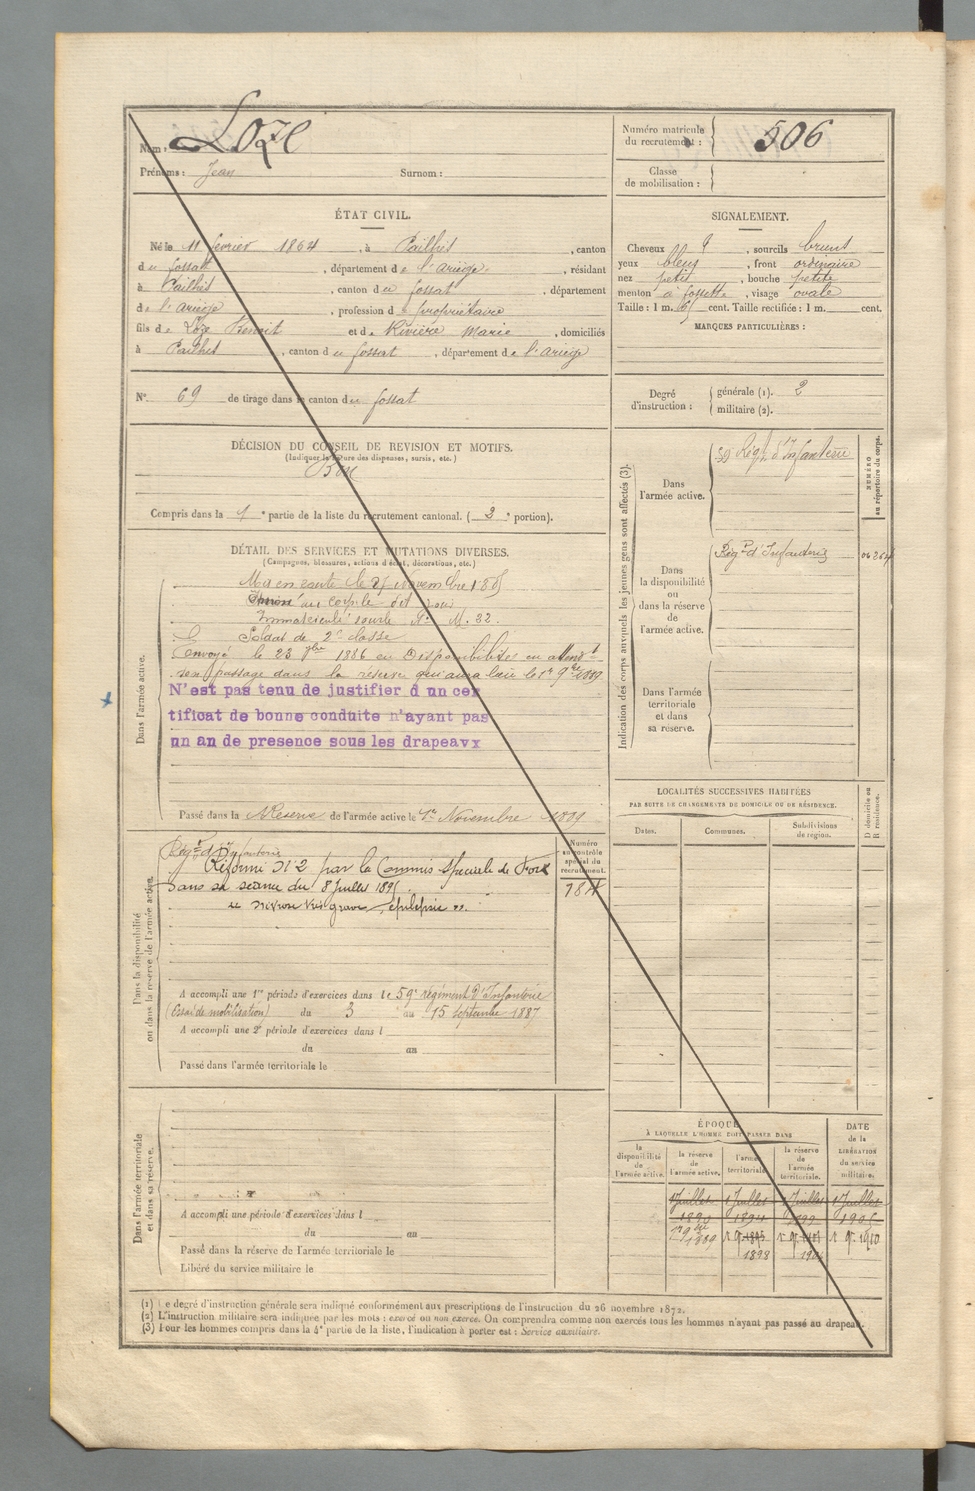 Nom : Loze
Prénoms : Jean Surnom :
Numéro matricule du recrutement : 506
Classe de mobilisation :
ÉTAT CIVIL.
Né le 11 février 1864, à Pailhès, canton
du fossat, département de l'ariège, résidant
à Pailhès, canton du fossat, département
de l'ariège, profession de propriétaire
fils de Loze Benoit et de Rivière Marie, domiciliés
à Pailhès, canton du fossat, département de l'ariège
SIGNALEMENT.
Cheveux, sourcils bruns
yeux bleus, front ordinaire
nez petit, bouche petite
menton à fossette, visage ovale
Taille : 1 m. cent. Taille rectifiée : 1 m. cent.
MARQUES PARTICULIÈRES :
N° 69 de tirage dans le canton du fossat
Degré d'instruction : générale (1). 2
militaire (2).
DÉCISION DU CONSEIL DE REVISION ET MOTIFS.
(Indiquer la nature des dispenses, sursis, etc.)
Bon
Compris dans la 1e partie de la liste du recrutement cantonal. (2e portion).
DÉTAIL DES SERVICES ET MUTATIONS DIVERSES.
(Campagnes, blessures, actions d'éclat, décorations, etc.)
Dans l'armée active.
Mis en route le 27 Novembre 1885
au corps le dit jour
Immatriculé sous le N° M. 32
Soldat de 2e classe
Envoyé le 23 9bre 1886 en Disponibilité en attendt
son passage dans la réserve qui aura lieu le 1er 9bre 1889
N'est pas tenu de justifier d un cer
tificat de bonne conduite n'ayant pas
un an de presence sous les drapeavx
Passé dans la Réserve de l'armée active le 1er Novembre 1889
Indication des corps auxquels les jeunes gens sont affectés (3).
NUMÉRO au répertoire du corps.
Dans l'armée active.
59 Régt d'Infanterie
Dans la disponibilité ou dans la réserve de l'armée active.
Régt d'Infanterie
Dans l'armée territoriale et dans sa réserve.
LOCALITÉS SUCCESSIVES HABITÉES
PAR SUITE DE CHANGEMENTS DE DOMICILE OU DE RÉSIDENCE.
D domicile ou R résidence.
Dates. Communes. Subdivisions de région.
Dans la disponibilité ou dans la réserve de l'armée active.
Numéro au contrôle spécial du recrutement.
Régt d'Infanterie
Réformé N°2 par la Commis Spéciale de Foix
dans sa séance du 8 Juillet 1895.
" névrose très grave, épilepsie ".
A accompli une 1re période d'exercices dans le 59e régiment d'Infanterie
(Essai de mobilisation) du 3 au 15 Septembre 1887
A accompli une 2e période d'exercices dans l
du au
Passé dans l'armée territoriale le
Dans l'armée territoriale et dans sa réserve.
A accompli une période d'exercices dans l
du au
Passé dans la réserve de l'armée territoriale le
Libéré du service militaire le
ÉPOQUE
À LAQUELLE L'HOMME DOIT PASSER DANS
la disponibilité de l'armée active. la réserve de l'armée active. l'armée territoriale. la réserve de l'armée territoriale.
DATE de la LIBÉRATION du service militaire.
1 Juillet 1 Juillet 1 Juillet 1 Juillet
1890 1894 1899 1905
1er 9bre 1889
1898
(1) Le degré d'instruction générale sera indiqué conformément aux prescriptions de l'instruction du 26 novembre 1872.
(2) L'instruction militaire sera indiquée par les mots : exercé ou non exercé. On comprendra comme non exercés tous les hommes n'ayant pas passé au drapeau.
(3) Pour les hommes compris dans la 4e partie de la liste, l'indication à porter est : Service auxiliaire.